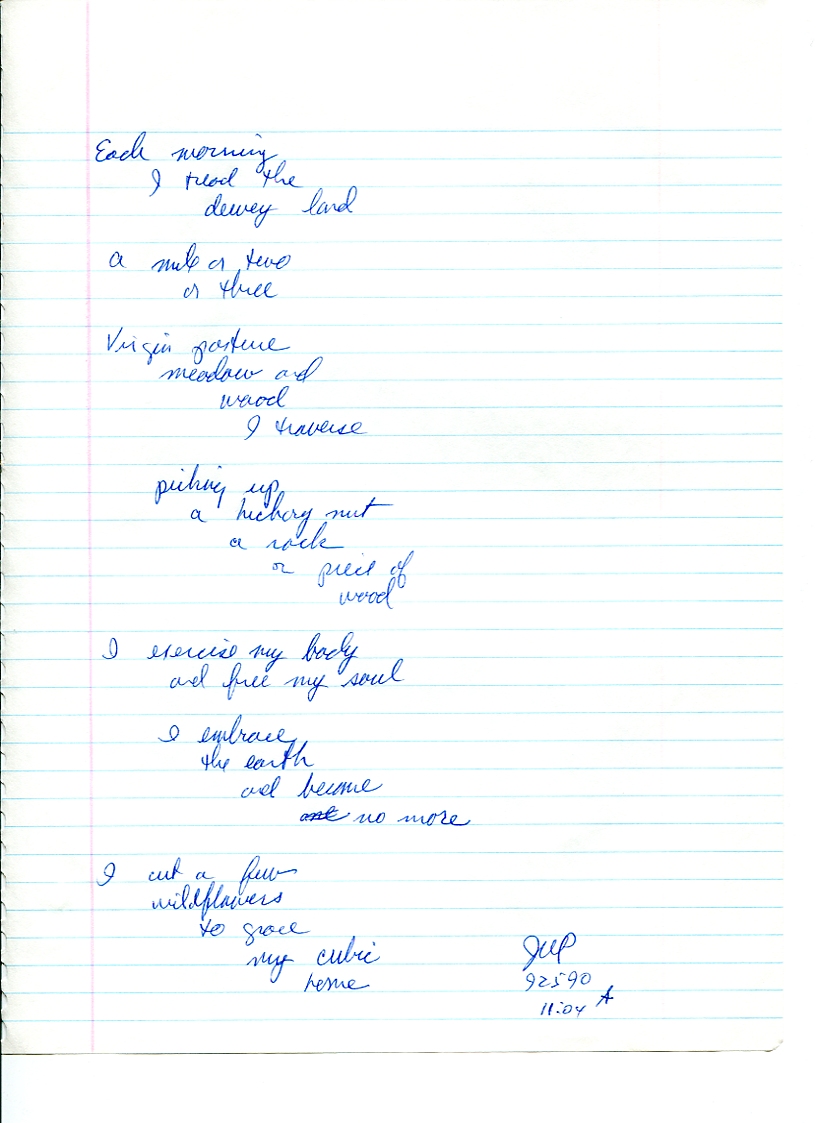 Each morning
I tread the
dewey land
a mile or two
or three
Virgin pasture
meadow and
wood
I traverse
picking up
a hickory nut
a rock
or piece of
wood
I exercise my body
and free my soul
I embrace
the earth
and become
one no more
I cut a few
wildflowers
to grace
my cubic
home
JWP
92590
11:04 A